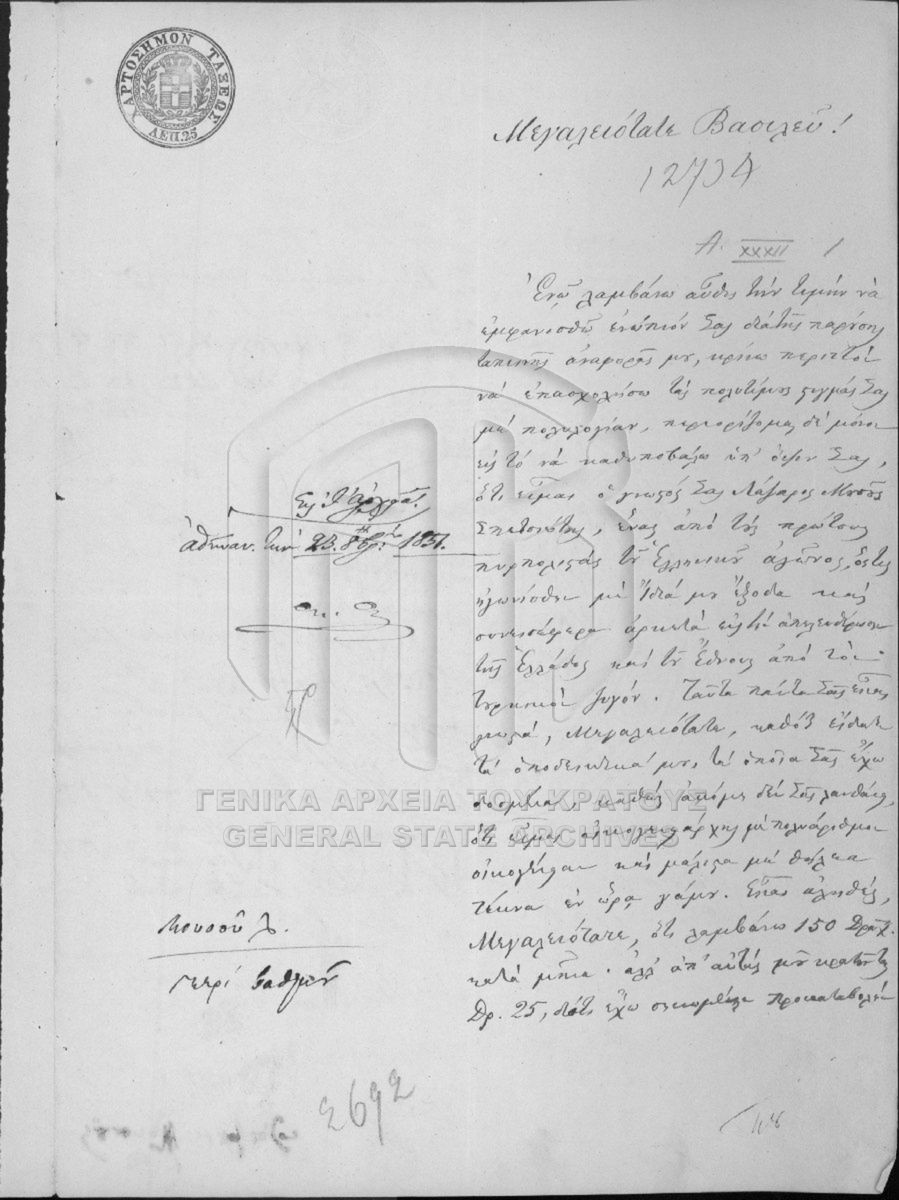 ΧΑΡΤΟΣΗΜΟΝ ΤΑΞΕΩΣ
ΛΕΠ. 25
Μεγαλειότατε Βασιλεῦ!
12734
Α. XXXII 1
Ἐνῷ λαμβάνω αὖθις τὴν τιμὴν νὰ
ἐμφανισθῶ ἐνώπιόν Σας διὰ τῆς παρούσης
ταπεινῆς ἀναφορᾶς μου, κρίνω περιττὸν
νὰ ἐπασχολήσω τὰς πολυτίμους στιγμάς Σας
μὲ πολυλογίαν, περιορίζομαι δὲ μόνον
εἰς τὸ νὰ καθυποβάλω ὑπ' ὄψιν Σας,
ὅτι εἶμαι ὁ γνωστός Σας Λάζαρος Μουσοῦς
Σπετσιώτης, ἕνας ἀπὸ τοὺς πρώτους
πυρπολιστὰς τοῦ Ἑλληνικοῦ ἀγῶνος, ὅστις
ἠγωνίσθην μὲ ἴδιά μου ἔξοδα καὶ
συνεισέφερα ἀρκετὰ εἰς τὴν ἀπελευθέρωσιν
τῆς Ἑλλάδος καὶ τοῦ Ἔθνους ἀπὸ τὸν
τυρκικὸν ζυγόν. Ταῦτα πάντα Σᾶς εἶναι
γνωστά, Μεγαλειότατε, καθότι εἴδατε
τὰ ἀποδεικτικά μου, τὰ ὁποῖα Σᾶς ἔχω
καθὼς ἀκόμη δὲν Σᾶς λανθάνει,
ὅτι εἶμαι οἰκογενειάρχης μὲ πολυάριθμον
οἰκογένειαν καὶ μάλιστα μὲ θήλεα
τέκνα ἐν ὥρᾳ γάμου. Εἶναι ἀληθές,
Μεγαλειότατε, ὅτι λαμβάνω 150 Δραχ.
κατὰ μῆνα. ἀλλ' ἀπ' αὐτὰς μοῦ κρατοῦνται
Δρ. 25, διότι ἔχω προκαταβολὴν
Ἀθῆναι τὴν 23 8βρίου 1851.
Μουσοῦ Λ.
περὶ βαθμοῦ
2692
ΓΕΝΙΚΑ ΑΡΧΕΙΑ ΤΟΥ ΚΡΑΤΟΥΣ
GENERAL STATE ARCHIVES